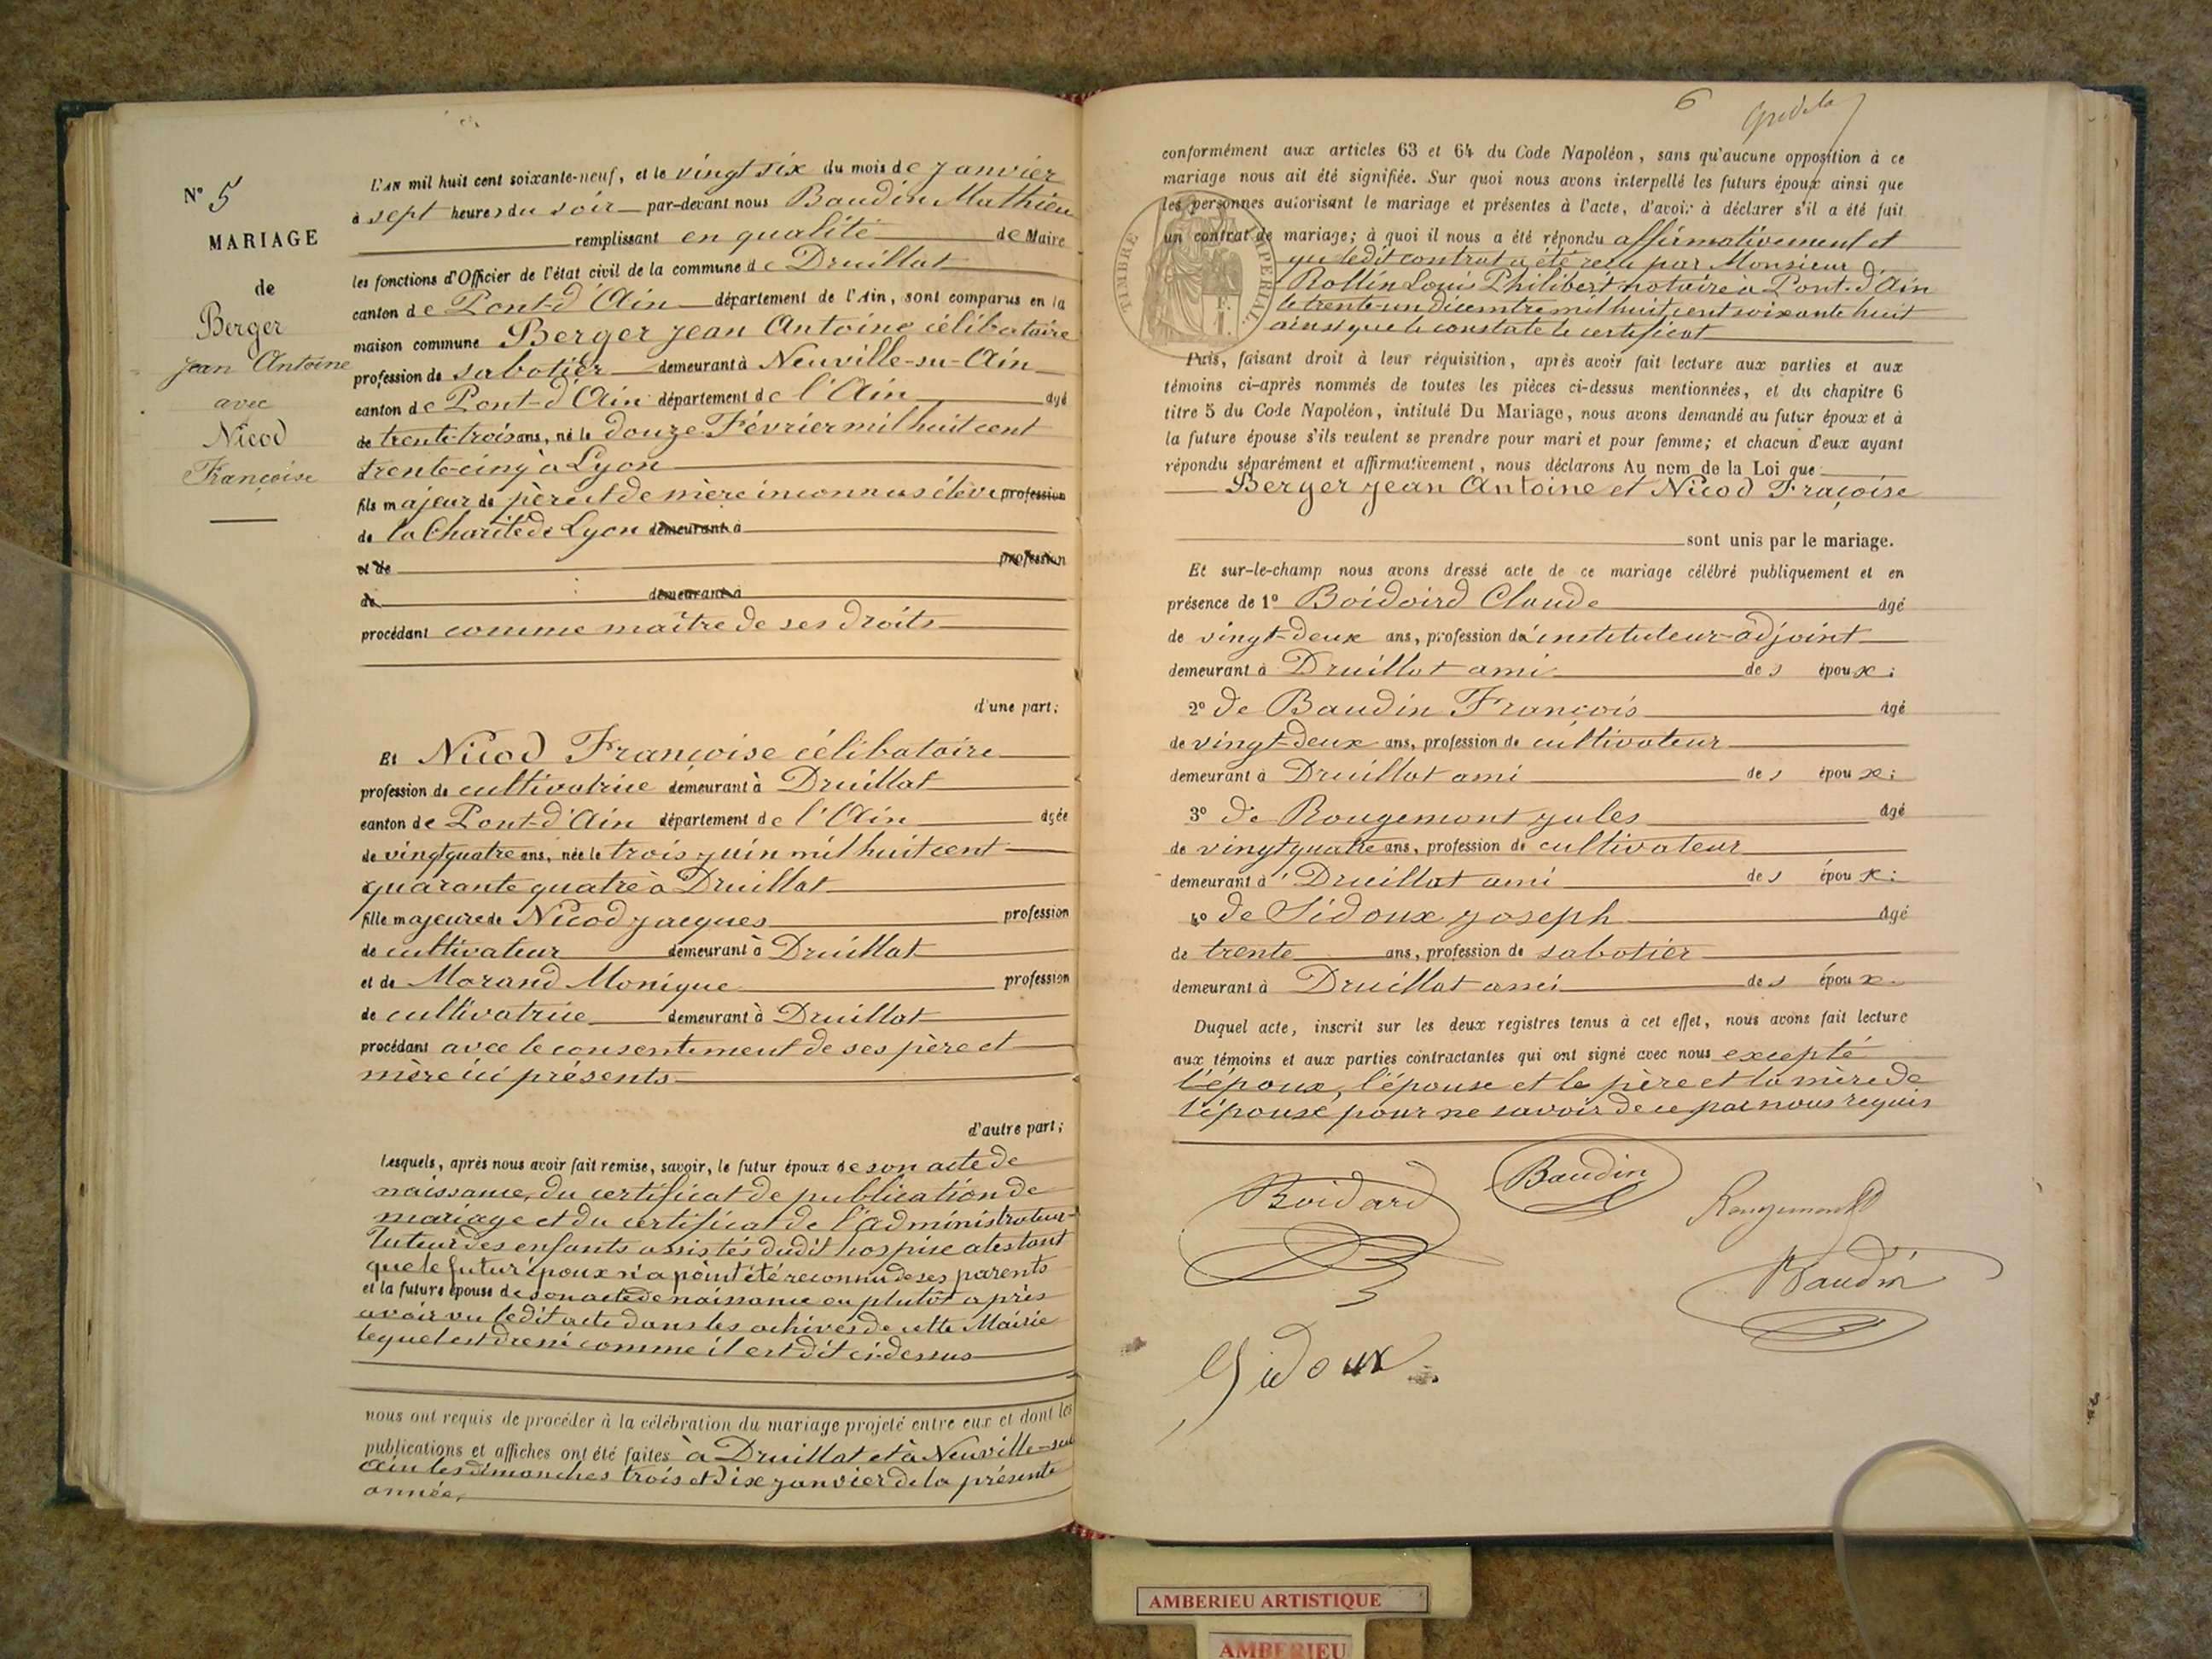 N° 5
MARIAGE
de
Berger
Jean Antoine
avec
Nicod
Françoise
L'AN mil huit cent soixante-neuf, et le vingt six du mois de Janvier
à sept heures du soir par-devant nous Baudin Mathieu
remplissant en qualité de Maire
les fonctions d'Officier de l'état civil de la commune de Druillat
canton de Pont-d'Ain département de l'Ain, sont comparus en la
maison commune Berger Jean Antoine célibataire
profession de sabotier demeurant à Neuville-sur-Ain
canton de Pont-d'Ain département de l'Ain âgé
de trente-trois ans, né le douze Février mil huit cent
trente-cinq à Lyon
fils majeur de père et de mère inconnus élève profession
de la Charité de Lyon demeurant à
et de profession
de demeurant à
procédant comme maître de ses droits
d'une part;
Et Nicod Françoise célibataire
profession de cultivatrice demeurant à Druillat
canton de Pont-d'Ain département de l'Ain âgée
de vingt quatre ans, née le trois juin mil huit cent
quarante quatre à Druillat
fille majeure de Nicod Jacques profession
de cultivateur demeurant à Druillat
et de Morand Monique profession
de cultivatrice demeurant à Druillat
procédant avec le consentement de ses père et
mère ici présents
d'autre part;
Lesquels, après nous avoir fait remise, savoir, le futur époux de son acte de
naissance, du certificat de publication de
mariage et du certificat de l'administrateur-
tuteur des enfants assistés dudit hospice atestant
que le futur époux n'a point été reconnu de ses parents
et la future épouse de son acte de naissance ou plutôt après
avoir vu ledit acte dans les achives de cette Mairie
lequel est dressé comme il est dit ci-dessus
nous ont requis de procéder à la célébration du mariage projeté entre eux et dont les
publications et affiches ont été faites à Druillat et à Neuville-sur
Ain les dimanches trois et dix janvier de la présente
année,
6
conformément aux articles 63 et 64 du Code Napoléon, sans qu'aucune opposition à ce
mariage nous ait été signifiée. Sur quoi nous avons interpellé les futurs époux ainsi que
les personnes autorisant le mariage et présentes à l'acte, d'avoir à déclarer s'il a été fait
un contrat de mariage; à quoi il nous a été répondu affirmativement et
que ledit contrat a été reçu par Monsieur
Rollin Louis Philibert notaire à Pont-d'Ain
le trente-un décembre mil huit cent soixante huit
ainsi que le constate le certificat
TIMBRE IMPERIAL
Puis, faisant droit à leur réquisition, après avoir fait lecture aux parties et aux
témoins ci-après nommés de toutes les pièces ci-dessus mentionnées, et du chapitre 6
titre 5 du Code Napoléon, intitulé Du Mariage, nous avons demandé au futur époux et à
la future épouse s'ils veulent se prendre pour mari et pour femme; et chacun d'eux ayant
répondu séparément et affirmativement, nous déclarons Au nom de la Loi que
Berger Jean Antoine et Nicod Fraçoise
sont unis par le mariage.
Et sur-le-champ nous avons dressé acte de ce mariage célébré publiquement et en
présence de 1° Boidoird Claude âgé
de vingt-deux ans, profession d'instituteur-adjoint
demeurant à Druillat ami des époux;
2° de Baudin François âgé
de vingt-deux ans, profession de cultivateur
demeurant à Druillat ami des époux;
3° de Rougemont Jules âgé
de vingt quatre ans, profession de cultivateur
demeurant à Druillat ami des époux;
4° de Sidoux Joseph âgé
de trente ans, profession de sabotier
demeurant à Druillat ami des époux.
Duquel acte, inscrit sur les deux registres tenus à cet effet, nous avons fait lecture
aux témoins et aux parties contractantes qui ont signé avec nous excepté
l'époux, l'épouse et le père et la mère de
l'épouse pour ne savoir de ce par nous requis
Boidard
Baudin
Rougemont
Baudin
Sidoux
AMBERIEU ARTISTIQUE
AMBERIEU